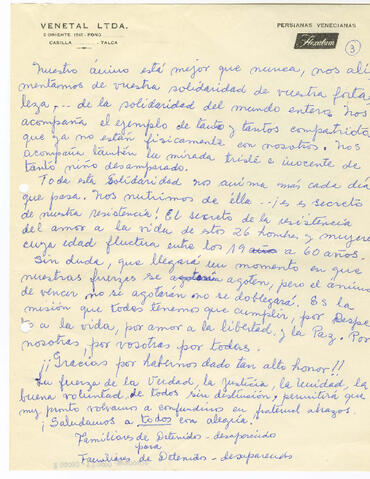 VENETAL LTDA.
PERSIANAS VENECIANAS
2 ORIENTE 1141 - FONO
CASILLA TALCA
Flexalum
3
Nuestro ánimo está mejor que nunca, nos ali
mentamos de vuestra solidaridad de vuestra forta
leza... de la solidaridad del mundo entero. Nos
acompaña el ejemplo de tanto y tantos compatriota
que ya no están físicamente con nosotros. Nos
acompaña también la mirada triste e inocente de
tanto niño desamparado.
Toda esta solidaridad nos anima más cada día
que pasa. Nos nutrimos de ella.. ¡es es secreto
de nuestra resistencia! El secreto de la resistencia
del amor a la vida de estos 26 hombres y mujeres
cuya edad fluctúa entre los 19 años a 60 años.
Sin duda, que llegará un momento en que
nuestras fuerzas se agoten, pero el ánimo
de vencer no se agotará no se doblegará. Es la
misión que todos tenemos que cumplir, por Respe
to a la vida, por amor a la libertad y la Paz. Por
nosotras, por vosotras por todas.
¡¡Gracias por habernos dado tan alto honor!!
La fuerza de la Verdad, la Justicia, la Unidad, la
buena voluntad de todos sin distinción, permitirá que
muy pronto volvamos a confundirnos en fraternal abrazos.
¡Saludamos a todos con alegría.
Familiares de Detenidos - desaparecidos
para
Familiares de Detenido - desaparecidos